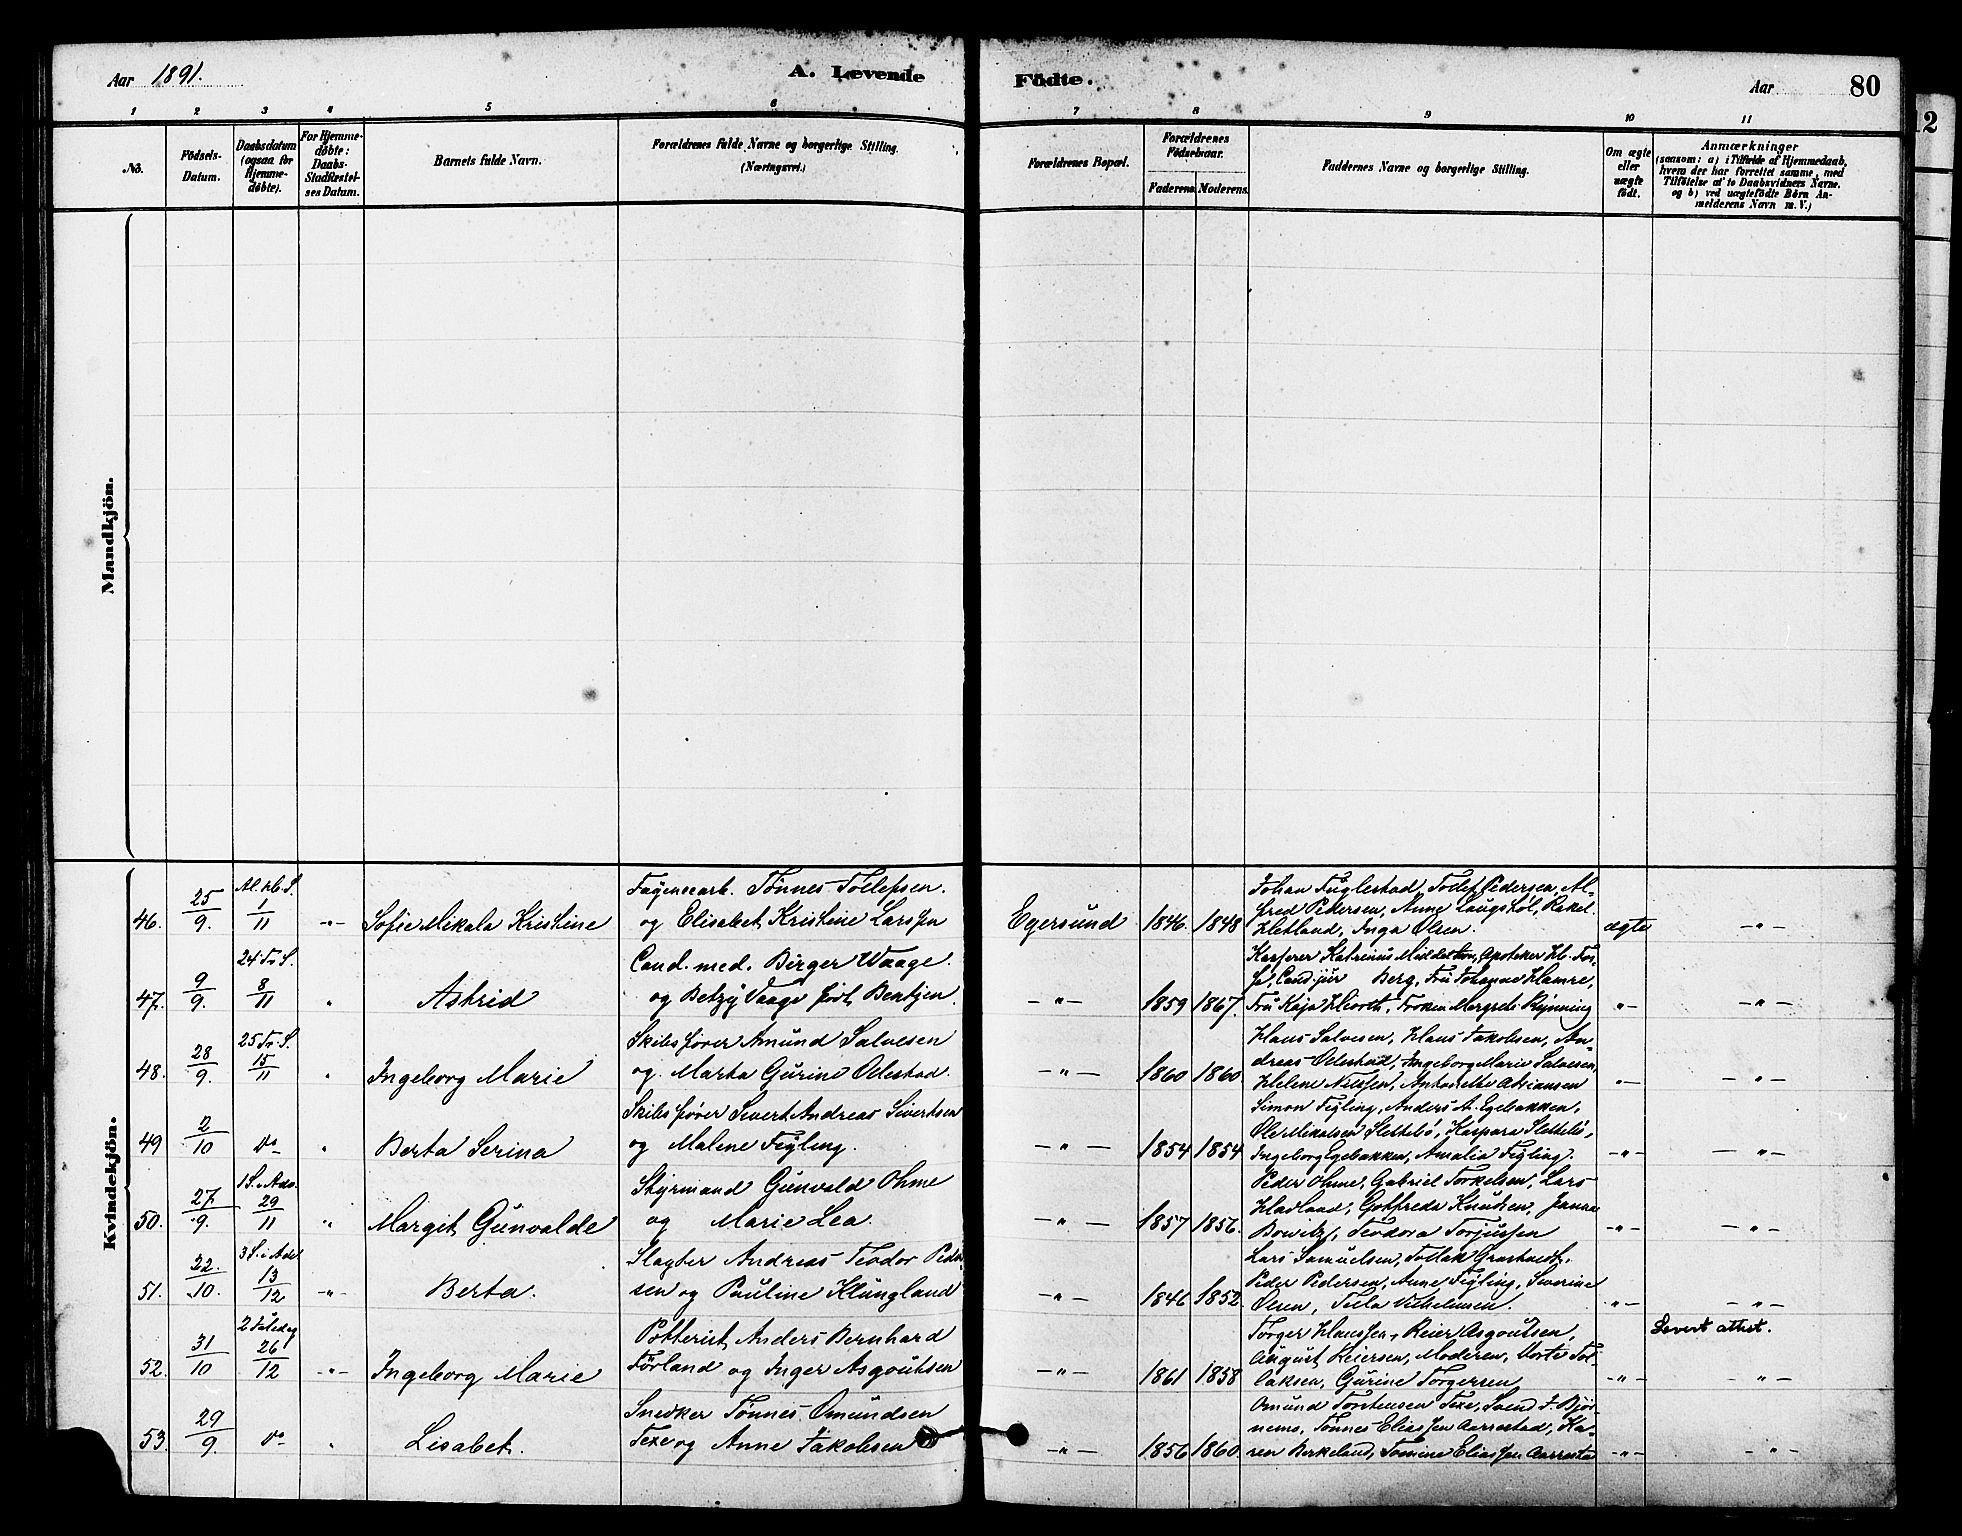 Aar 1891.
A. Levende Födte.
Aar
80
12
1 2 3 4 5 6 7 8 9 10 11
No.
Födsels-
Datum.
Daabsdatum
(ogsaa for
Hjemme-
döbte).
For Hjemme-
döbte:
Daabs-
Stadfæstel-
ses Datum.
Barnets fulde Navn.
Forældrenes fulde Navne og borgerlige Stilling.
(Næringsvei.)
Forældrenes Bopæl.
Forældrenes
Födselsaar.
Faderens. Moderens.
Faddernes Navne og borgerlige Stilling.
Om ægte
eller
uægte
födt.
Anmærkninger
(saasom: a) i Tilfælde af Hjemmedaab,
hvem der har forrettet samme, med
Tilföielse af to Daabsvidners Navne.
og b) ved uægtefödte Börn An-
melderens Navn m. V.)
Mandkjön.
Kvindekjön.
46. 25/9. Al. Hb. S. 1/11 -"- Sofie Mikala Kristine
Fayencearb. Tönnes Tollefsen.
og Elisabet Kristine Larssen
Egersund 1846. 1848
Johan Fuglestad, Todef Pedersen, Al-
fred Pedersen, Anne Laugshol, Rakel
Hetland, Inga Olsen.
ægte -"-
47. 9/9. 24 Tr. S. 8/11 " Astrid
Cand. med. Birger Waage.
og Betzy Vaage född Bentzen.
-"- 1859 1867.
Kasserer Katrinus Middelthon, Apoteker Hb. Fos-
se, Cand. jür Berg, Frü Johanne Hamre,
Frü Kaja Hiorth, Fröken Margrete Rynning
"- -"-
48. 28/9. 25 Tr. S. 15/11 " Ingeborg Marie
Skibsförer Amund Salvesen
og Marta Gurine Odestad.
-"- 1860 1860
Hans Salvesen, Hans Jakobsen, An-
dreas Odestad, Ingeborg Marie Salvesen,
Helene Nilssen, Antonette Adriansen
"- -"-
49 2/10 do " Berta Serina
Skibsförer Sivert Andreas Sivertsen
og Malene Fejling.
-"- 1854 1854
Simon Fejling, Anders A. Egebakken,
Ole Mikalsen Slettebö, Kaspara Slettebö,
Ingeborg Egebakken, Amalia Fejling.
-"- -"-
50. 27/9. 1 S. i Adv. 29/11 " Margit Gunvalde
Styrmand Gunvald Ohme
og Marie Lea.
-"- 1857 1856.
Peder Ohme, Gabriel Torkelsen, Lars
Hadland, Gotfreda Knudsen, Janna
Bowitz, Teodora Torjussen
-"- -"-
51. 22./10. 3 S. i Adv. 13/12 -"- Berta.
Slagter Andreas Teodor Peder-
sen og Pauline Klungland
-"- 1846 1852.
Lars Samuelsen, Tollak Grastveit,
Peder Pedersen, Anne Fejling, Severine
Olsen, Teila Vilhelmsen.
"- -"-
52. 31/10 2 Juledag 26/12 -"- Ingeborg Marie
Potterist Anders Bernhard
Förland og Inger Asgoutsen
-"- 1861 1858
Torger Hanssen, Reier Asgoutsen,
August Reiersen, Moderen, Dorte Tol-
laksen, Gurine Torgersen
-"- Levert attest.
-"-
53. 29/9. do " Lisabet.
Snedker Tönnes Omundsen
Texe og Anne Jakobsen
-"- 1856 1860.
Omund Torstensen Texe, Svend J. Björ-
nemo, Tönnes Eliassen Aarrestad, Ka-
ren Birkeland, Tomine Eliassen Aarrestad
-"- -"-